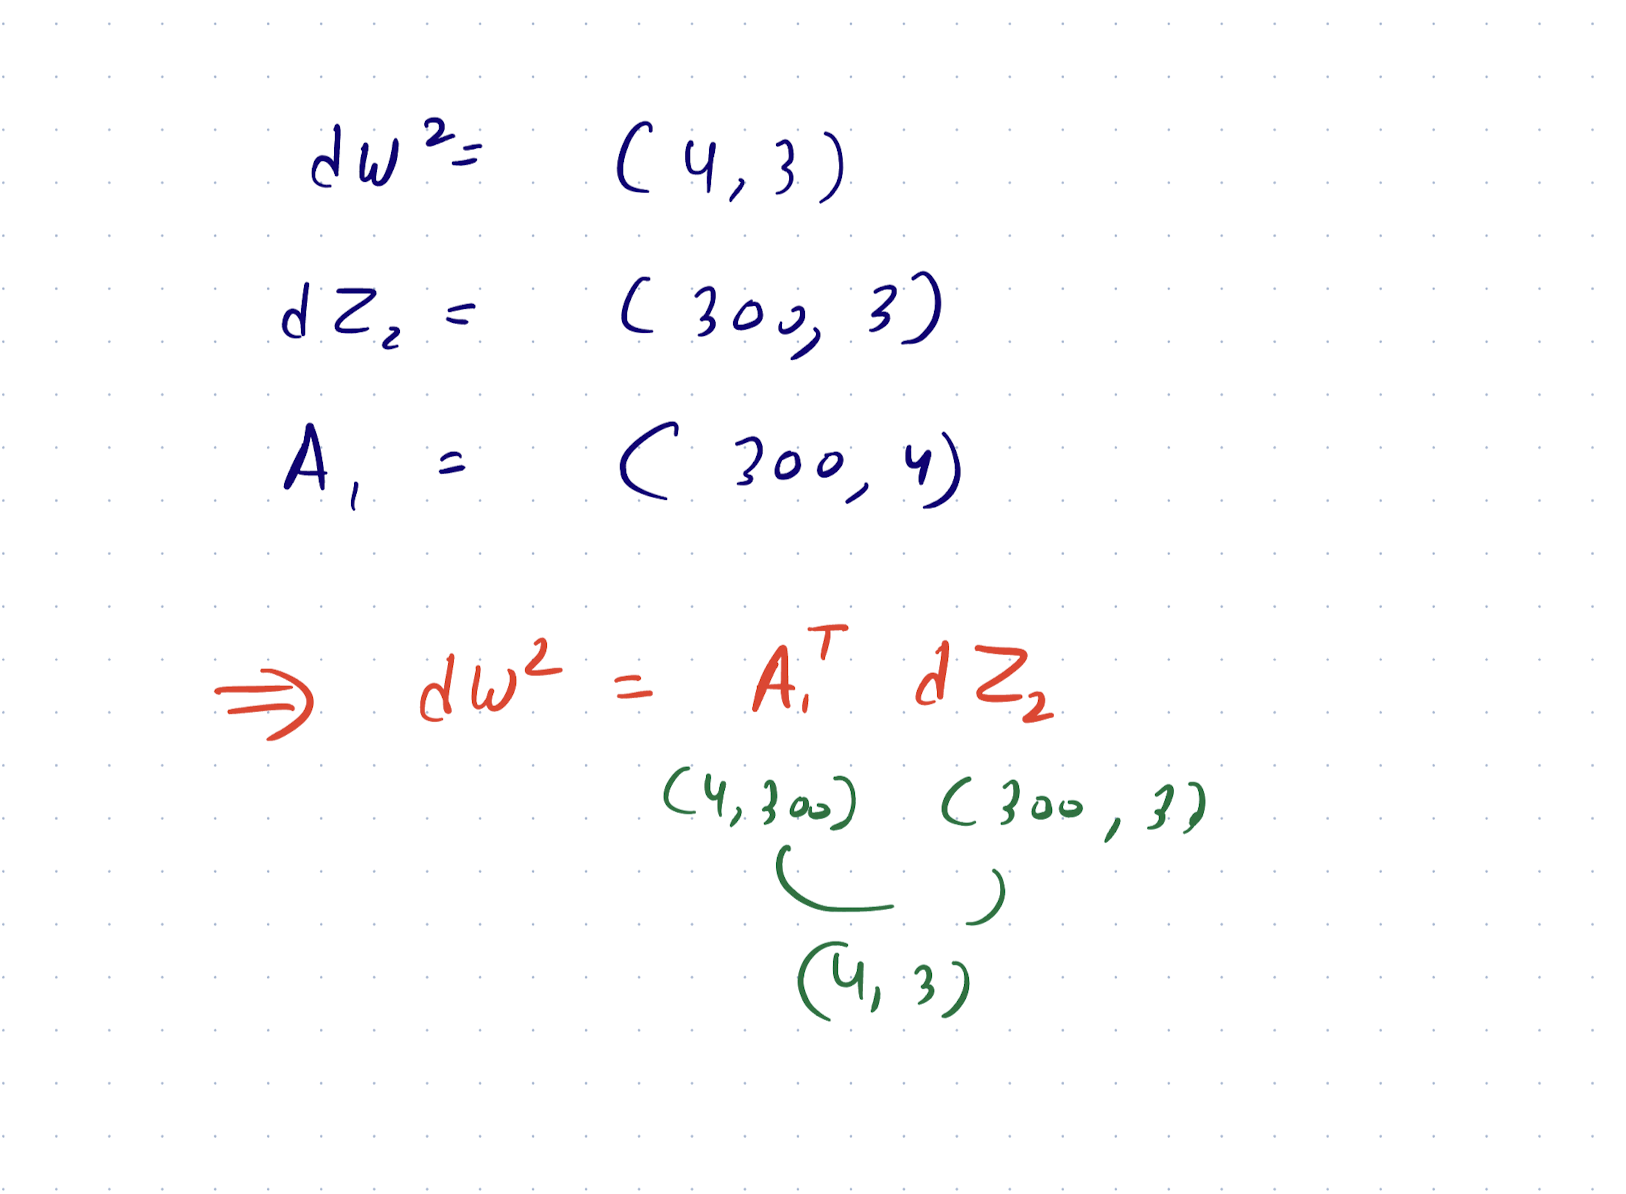 dw² = (4,3)
dZ₂ = (300, 3)
A₁ = (300, 4)
⇒ dw² = A₁ᵀ dZ₂
(4,300) (300, 3)
(4, 3)